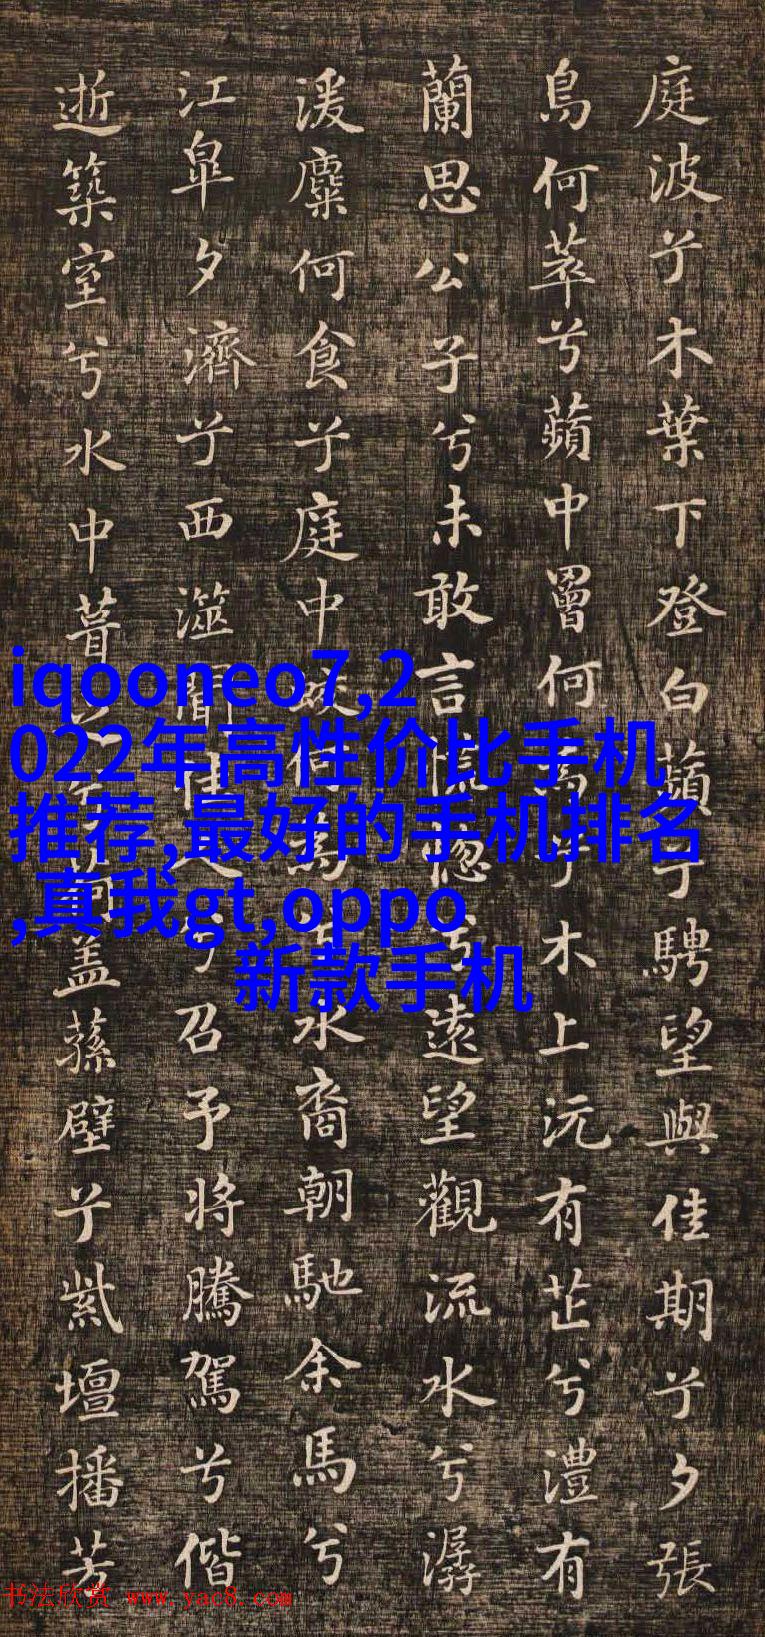 庭波兮木葉下登白蘋兮騁望與佳期兮夕張
鳥何萃兮蘋中罾何為兮木上沅有芷兮澧有
蘭思公子兮未敢言慌惚兮遠望觀流水兮潺
湲麋何食兮庭中蛟何為兮水裔朝馳余馬兮
江皐夕濟兮西澨聞佳人兮召予將騰駕兮偕
逝築室兮水中葺之兮荷蓋蓀壁兮紫壇播芳
iqooneo7,2
022年高性价比手机
推荐,最好的手机排名
,真我gt,oppo
新款手机
书法欣赏 www.yac8.com